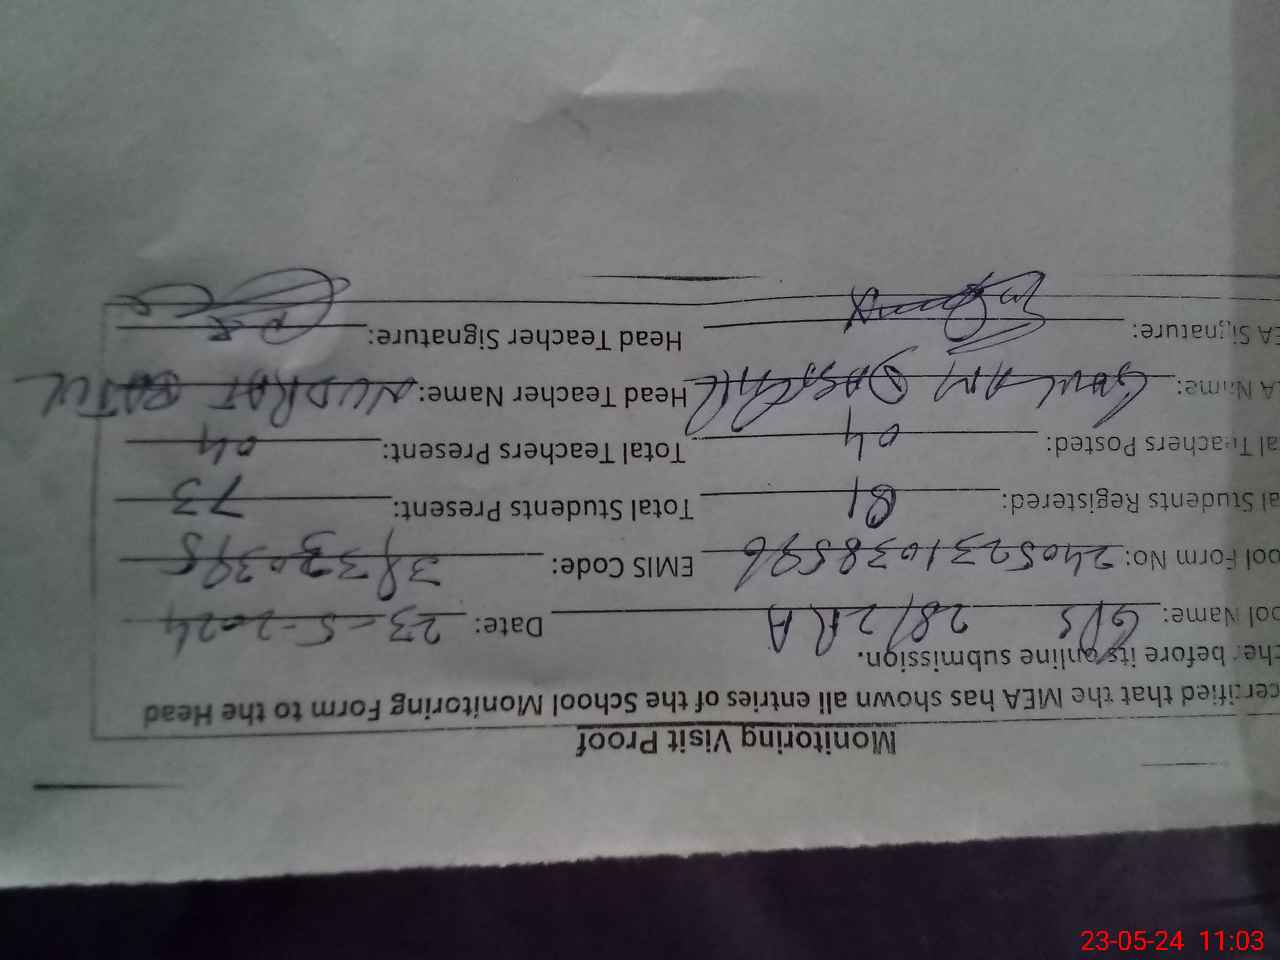 Monitoring Visit Proof
certified that the MEA has shown all entries of the School Monitoring Form to the Head
cher before its online submission.
ool Name: GPS 28/2RA Date: 23-5-2024
ool Form No: 2405231038596 EMIS Code:
al Students Registered: 81 Total Students Present: 73
al Teachers Posted: 04 Total Teachers Present: 04
A Name: Head Teacher Name: NUDRAT BATUL
EA Signature: Head Teacher Signature:
23-05-24 11:03